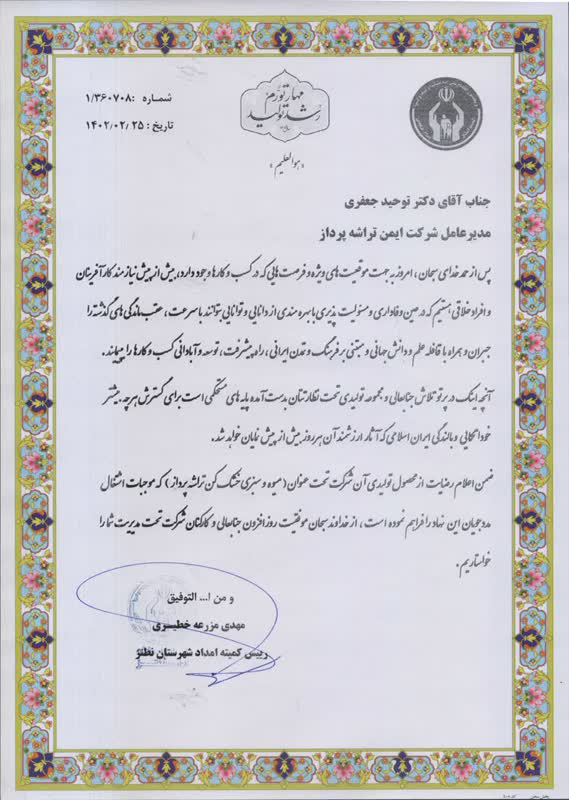 شماره : ۱/۳۶۰۷۰۸
تاریخ : ۱۴۰۲/۰۲/۲۵
مهار تورم
رشد تولید
«هوالعلیم»
جناب آقای دکتر توحید جعفری
مدیرعامل شرکت ایمن تراشه پرداز
پس از حمد خدای سبحان ، امروز به جهت موقعیت های ویژه و فرصت هایی که در کسب و کارها وجود دارد، بیش از پیش نیازمند کارآفرینان
و افراد خلاقی هستیم که در عین وفاداری و مسئولیت پذیری با بهره مندی از دانایی و توانایی بتوانند با سرعت ، عقب ماندگی های گذشته را
جبران و همراه با قافله علم و دانش جهانی و مبتنی بر فرهنگ و تمدن ایرانی ، راه پیشرفت، توسعه و آبادانی کسب و کارها را بپیمایند.
آنچه اینک در پرتو تلاش جنابعالی و مجموعه تولیدی تحت نظارتتان بدست آمده پایه های مستحکمی است برای گسترش هرچه بیشتر
خوداتکایی و بالندگی ایران اسلامی که آثار ارزشمند آن هر روز بیش از پیش نمایان خواهد شد.
ضمن اعلام رضایت از محصول تولیدی آن شرکت تحت عنوان (میوه و سبزی خشک کن تراشه پرداز ) که موجبات اشتغال
مددجویان این نهاد را فراهم نموده است ، از خداوند سبحان موفقیت روزافزون جنابعالی و کارکنان شرکت تحت مدیریت شما را
خواستاریم .
و من ا... التوفیق
مهدی مزرعه خطیری
رییس کمیته امداد شهرستان نطنز